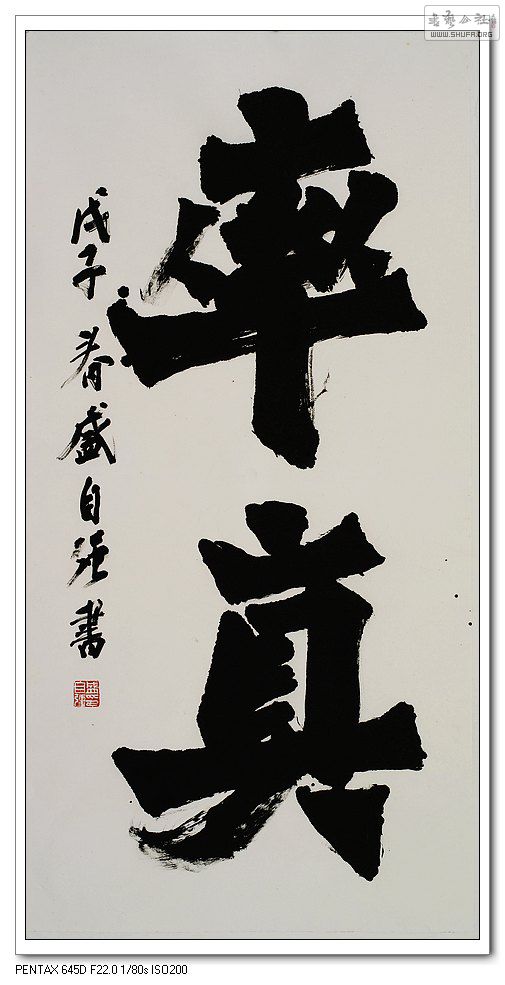 書藝公社
WWW.SHUFA.ORG
率真
戊子春盛自强書
PENTAX 645D F22.0 1/80s ISO200